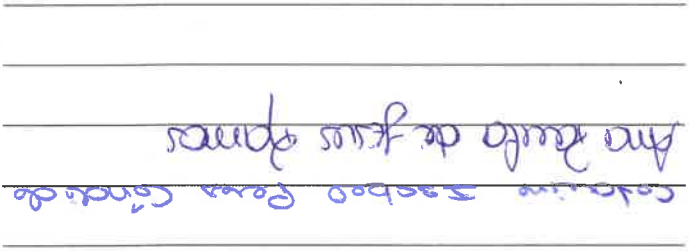 Catarina Isabel Peres Cândido
Ana Paula de Jesus Ramos